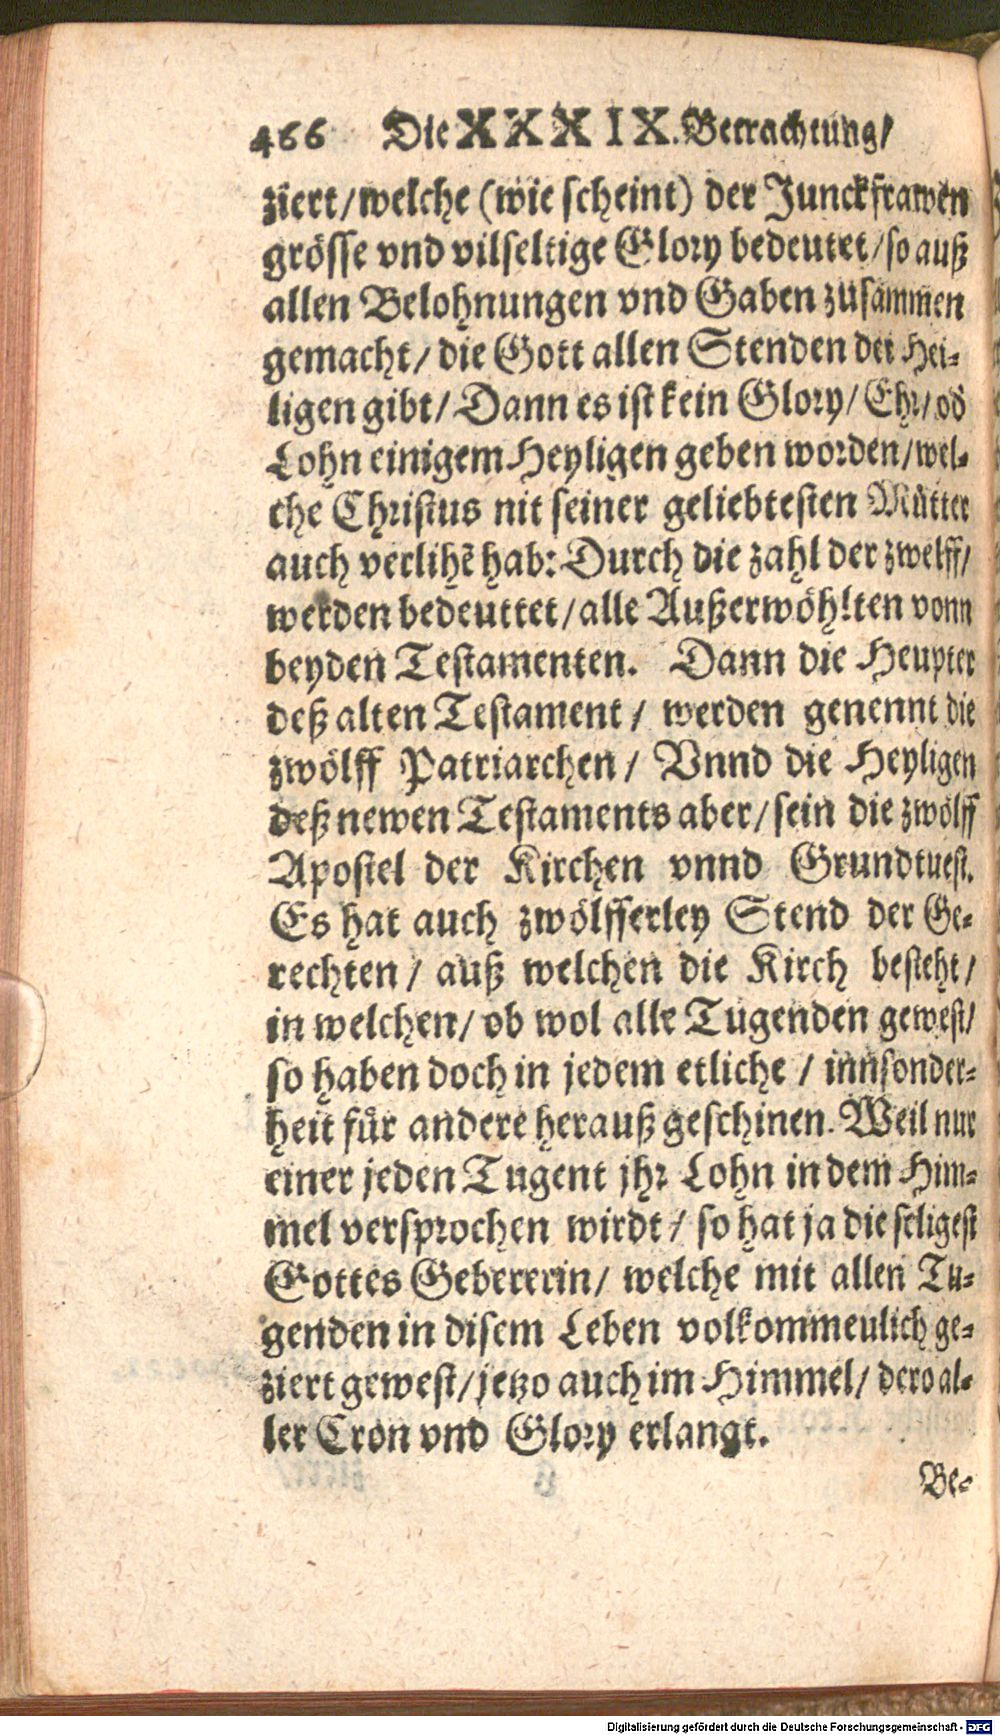 466 Die XXXIX. Betrachtung/
ziert/welche (wie scheint) der Junckfrawen
grösse vnd vilseltige Glory bedeutet/so auß
allen Belohnungen vnd Gaben zusammen
gemacht/ die Gott allen Stenden der Hei-
ligen gibt/ Dann es ist kein Glory/ Ehr/ od
Lohn einigem Heyligen geben worden/wel-
che Christus nit seiner geliebtesten Můtter
auch verlihẽ hab: Durch die zahl der zwelff/
werden bedeuttet/alle Außerwöhlten vonn
beyden Testamenten. Dann die Heupter
deß alten Testament/ werden genennt die
zwölff Patriarchen/ Vnnd die Heyligen
deß newen Testaments aber/sein die zwölff
Apostel der Kirchen vnnd Grundtuest.
Es hat auch zwölfferley Stend der Ge-
rechten/ auß welchen die Kirch besteht/
in welchen/ ob wol alle Tugenden gewest/
so haben doch in jedem etliche / innsonder-
heit fůr andere herauß geschinen. Weil nur
einer jeden Tugent jhr Lohn in dem Him-
mel versprochen wirdt/ so hat ja die seligest
Gottes Gebererin/ welche mit allen Tu-
genden in disem Leben volkommeulich ge-
ziert gewest/jetzo auch im Himmel/ dero al-
ler Cron vnd Glory erlangt.
Be-
Digitalisierung gefördert durch die Deutsche Forschungsgemeinschaft - DFG